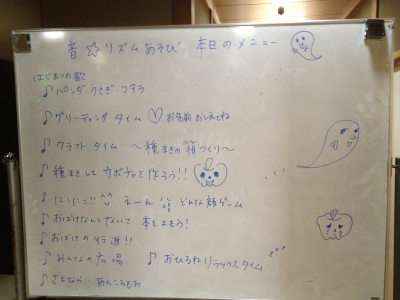 音☆リズムあそび 本日のメニュー
はじまりの歌
♪パンダ・うさぎ・コアラ
♪グリーティング タイム ♡お名前おしえてね
♪クラフト タイム 〜種まきの箱つくり〜
♪種まきして カボチャを作ろう!!
♪にこにこ!! えーん どんな顔ゲーム
♪おばけなんてないさ 本をよもう!
♪おばけの行進!!
♪みんなの広場 ♪おひるねリラックスタイム
♪さよなら あんころもち